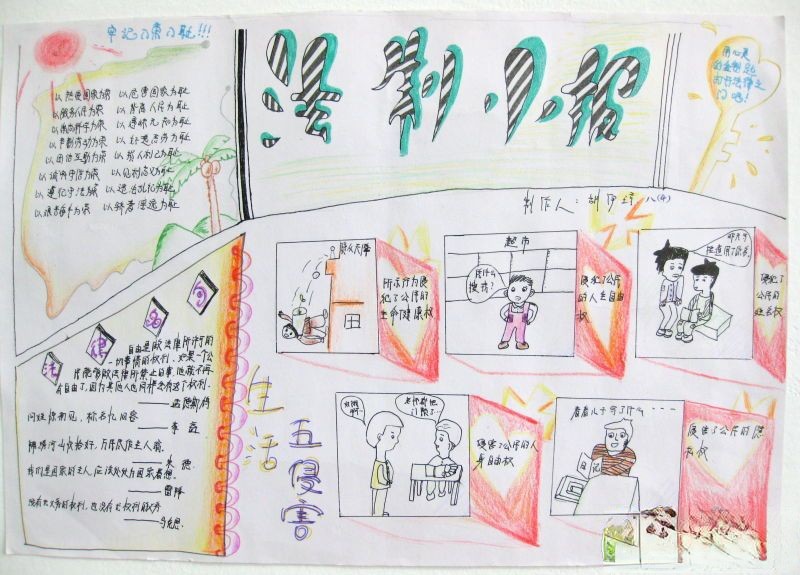 牢记八荣八耻!!!
以热爱国家为荣 以危害国家为耻
以服务人民为荣 以背离人民为耻
以崇尚科学为荣 以愚昧无知为耻
以辛勤劳动为荣 以好逸恶劳为耻
以团结互助为荣 以损人利己为耻
以诚实守信为荣 以见利忘义为耻
以遵纪守法为荣 以违法乱纪为耻
以艰苦奋斗为荣 以骄奢淫逸为耻
法制小报
用心灵
门吧!
制作人:胡伊 八(4)
法律名句
自由是做法律所许可的
一切事情的权利,如果一个公
民能够做法律所禁止的事,他就不再
有自由了,因为其他人也同样会有这个权利。
——孟德斯鸠
问姓惊初见,称名忆旧容
——李益
锦绣河山收拾好,万民尽作主人翁。
——朱德
我们是国家的主人,应该处处为国家着想。
——雷锋
没有无义务的权利,也没有无权利的义务
——马克思
生活五侵害
所示行为侵
犯了公民的
生命健康权
超市
凭什么
搜我?
侵犯了公民
的人身自由
权
侵犯了公民的
姓名权
侵害了公民的人
身自由权
看看儿子写了什么····
日记
侵害了公民的隐
私权